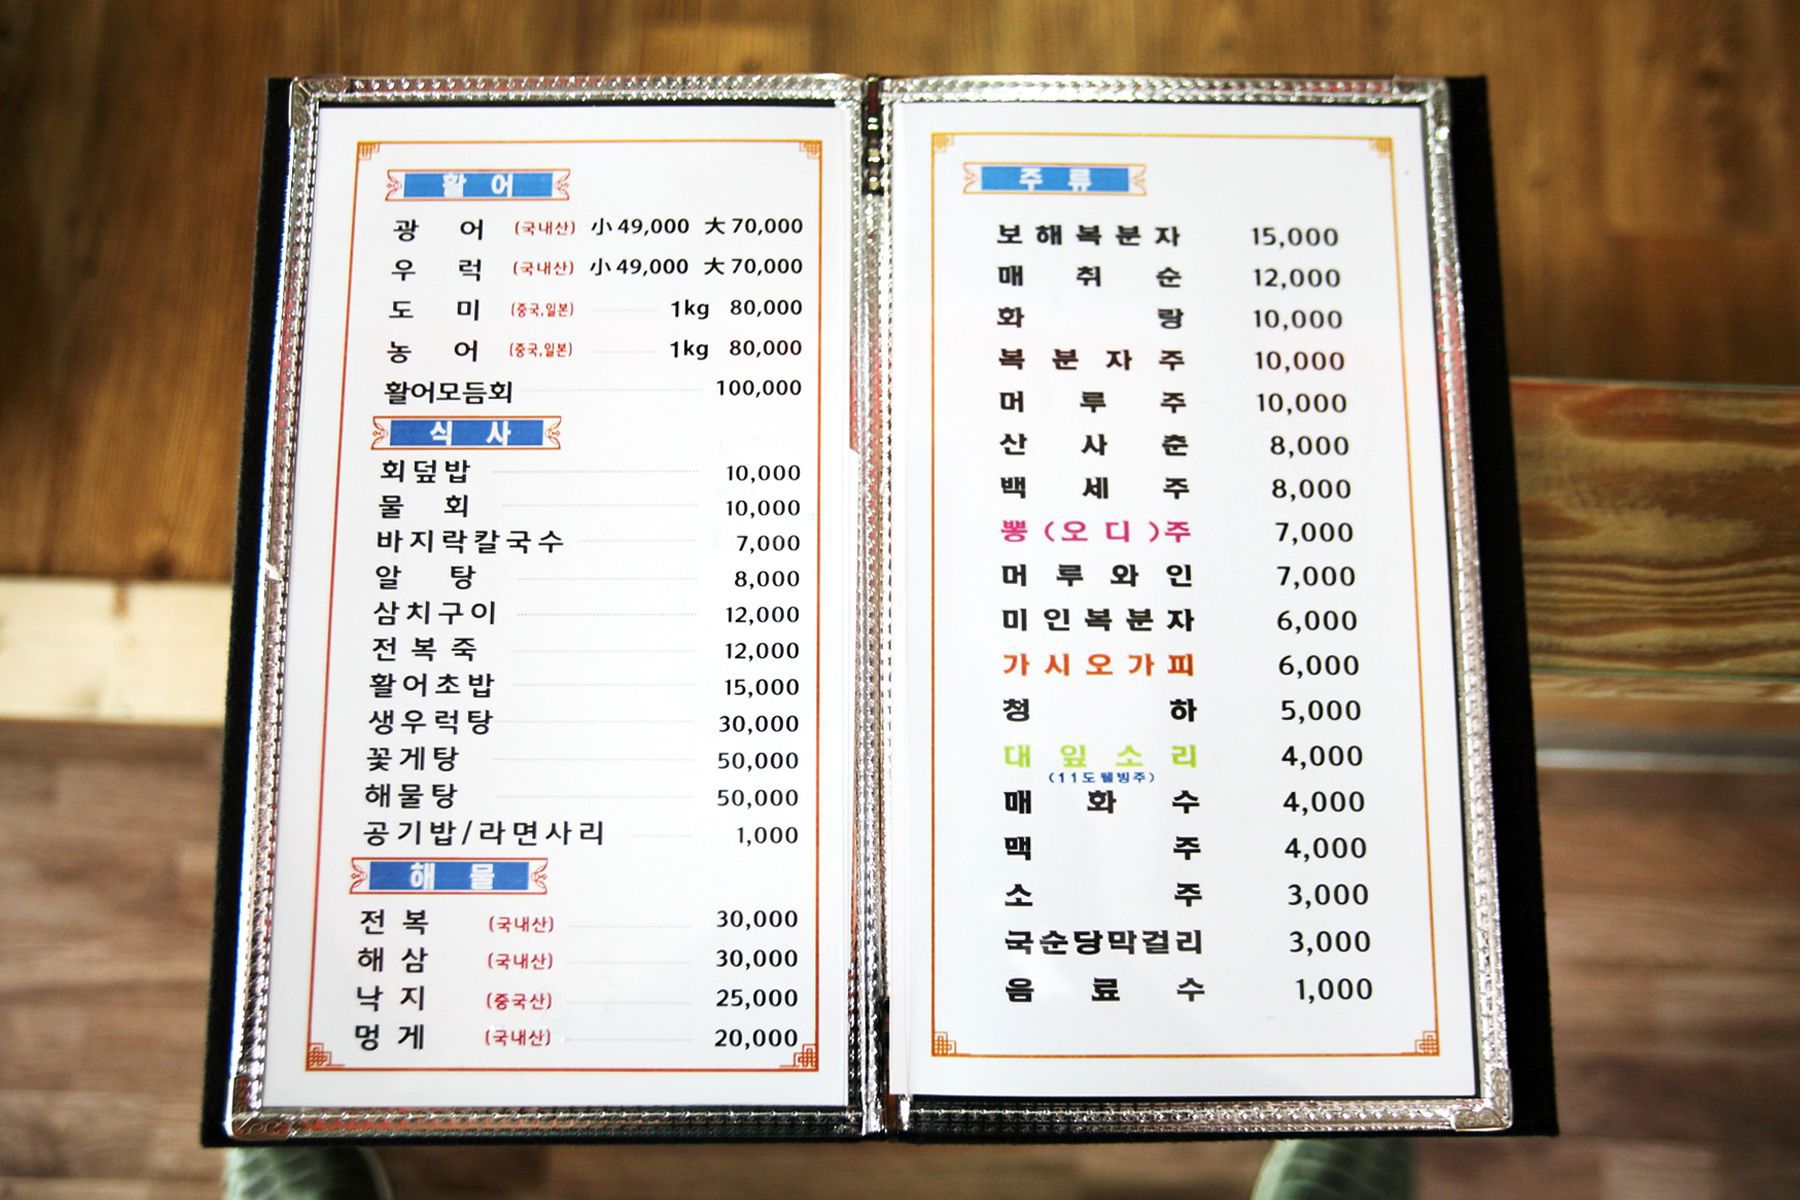 활어
광어 (국내산) 小 49,000 大 70,000
우럭 (국내산) 小 49,000 大 70,000
도미 (중국,일본) 1kg 80,000
농어 (중국,일본) 1kg 80,000
활어모듬회 100,000
식사
회덮밥 10,000
물회 10,000
바지락칼국수 7,000
알탕 8,000
삼치구이 12,000
전복죽 12,000
활어초밥 15,000
생우럭탕 30,000
꽃게탕 50,000
해물탕 50,000
공기밥/라면사리 1,000
해물
전복 (국내산) 30,000
해삼 (국내산) 30,000
낙지 (중국산) 25,000
멍게 (국내산) 20,000
주류
보해복분자 15,000
매취순 12,000
화랑 10,000
복분자주 10,000
머루주 10,000
산사춘 8,000
백세주 8,000
뽕(오디)주 7,000
머루와인 7,000
미인복분자 6,000
가시오가피 6,000
청하 5,000
대잎소리 4,000
(11도웰빙주)
매화수 4,000
맥주 4,000
소주 3,000
국순당막걸리 3,000
음료수 1,000